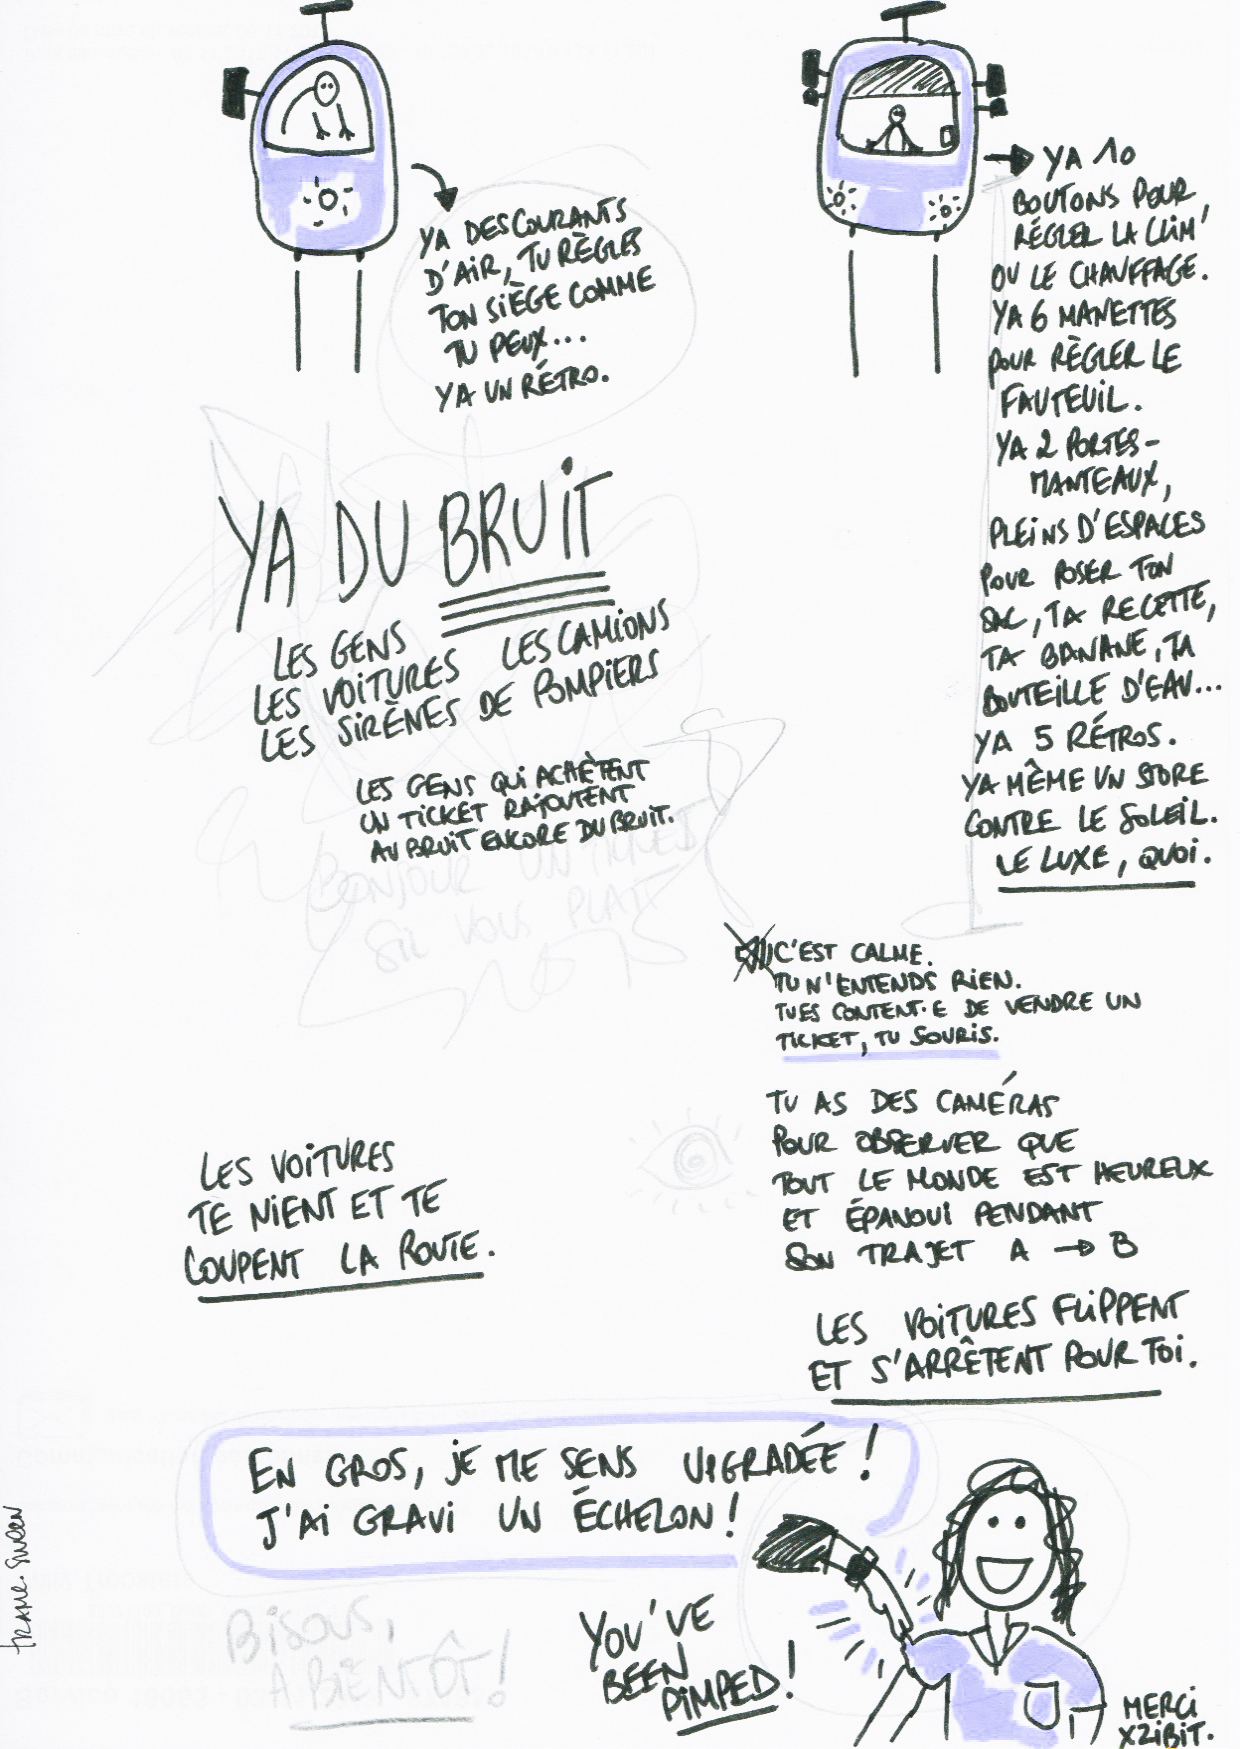 YA DES COURANTS
D'AIR, TU RÈGLES
TON SIÈGE COMME
TU PEUX...
YA UN RÉTRO.
YA DU BRUIT
LES GENS LES CAMIONS
LES VOITURES
LES SIRÈNES DE POMPIERS
LES GENS QUI ACHÈTENT
UN TICKET RAJOUTENT
AU BRUIT ENCORE DU BRUIT.
BONJOUR UN TICKET
SIL VOUS PLAIT
LES VOITURES
TE NIENT ET TE
COUPENT LA ROUTE.
YA 10
BOUTONS POUR
RÉGLER LA CLIM'
OU LE CHAUFFAGE.
YA 6 MANETTES
POUR RÈGLER LE
FAUTEUIL.
YA 2 PORTES-
MANTEAUX,
PLEINS D'ESPACES
POUR POSER TON
SAC, TA RECETTE,
TA BANANE, TA
BOUTEILLE D'EAU...
YA 5 RÉTROS.
YA MÊME UN STORE
CONTRE LE SOLEIL.
LE LUXE, QUOI.
C'EST CALME.
TU N'ENTENDS RIEN.
TU ES CONTENT·E DE VENDRE UN
TICKET, TU SOURIS.
TU AS DES CAMÉRAS
POUR OBSERVER QUE
TOUT LE MONDE EST HEUREUX
ET ÉPANOUI PENDANT
SON TRAJET A → B
LES VOITURES FLIPPENT
ET S'ARRÊTENT POUR TOI.
EN GROS, JE ME SENS UPGRADÉE !
J'AI GRAVI UN ÉCHELON !
BISOUS,
A BIENTÔT !
YOU'VE
BEEN
PIMPED !
MERCI
XZIBIT.